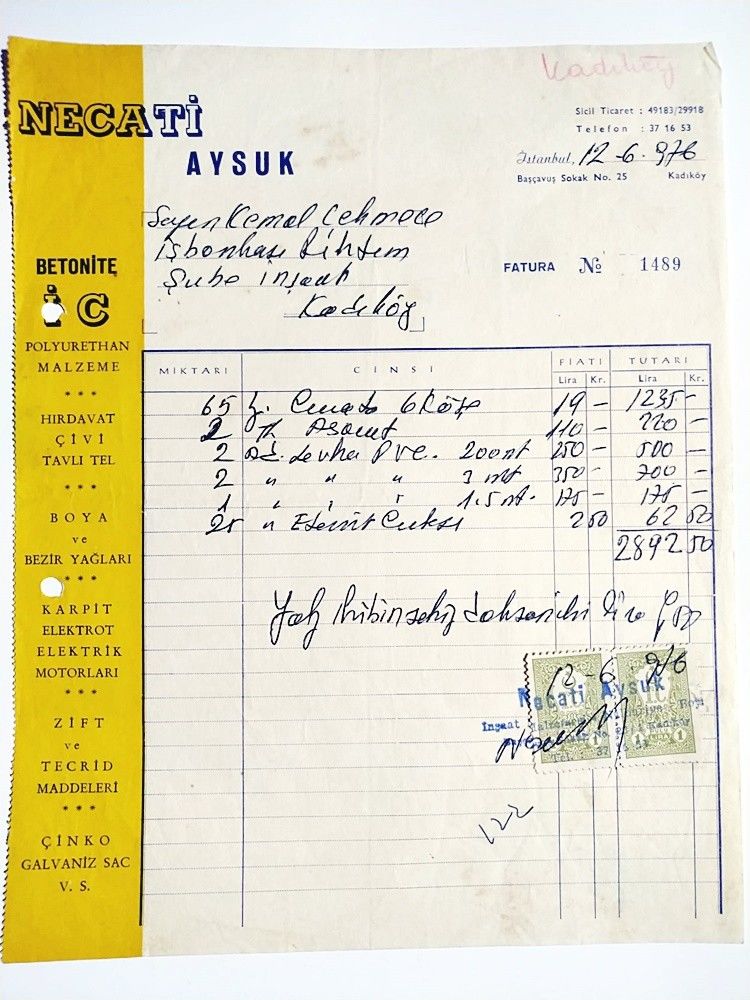 Kadıköy
NECATİ
AYSUK
Sicil Ticaret : 49183/29918
Telefon : 37 16 53
İstanbul, 12-6-976
Başçavuş Sokak No. 25 Kadıköy
Sayın Kemal Çekmece
İşbankası Rıhtım
Şube inşaat
Kadıköy
FATURA No 1489
BETONİTE
İC
POLYURETHAN
MALZEME
* * *
HIRDAVAT
ÇİVİ
TAVLI TEL
* * *
BOYA
ve
BEZİR YAĞLARI
* * *
KARPİT
ELEKTROT
ELEKTRİK
MOTORLARI
* * *
ZİFT
ve
TECRİD
MADDELERİ
* * *
ÇİNKO
GALVANİZ SAC
V. S.
MİKTARI CİNSİ FİATI TUTARI
Lira Kr. Lira Kr.
65 6 Köşe 19 - 1235 -
2 110 - 220 -
2 Ad. Levha PVC. 200 mt 250 - 500 -
2 " " " 3 mt 350 - 700 -
1 " " " 1.5 mt. 175 - 175 -
25 " Eternit 2 50 62 50
2892 50
Yalnız ikibinsekizyüzdoksaniki lira
12-6-976
Necati Aysuk
122